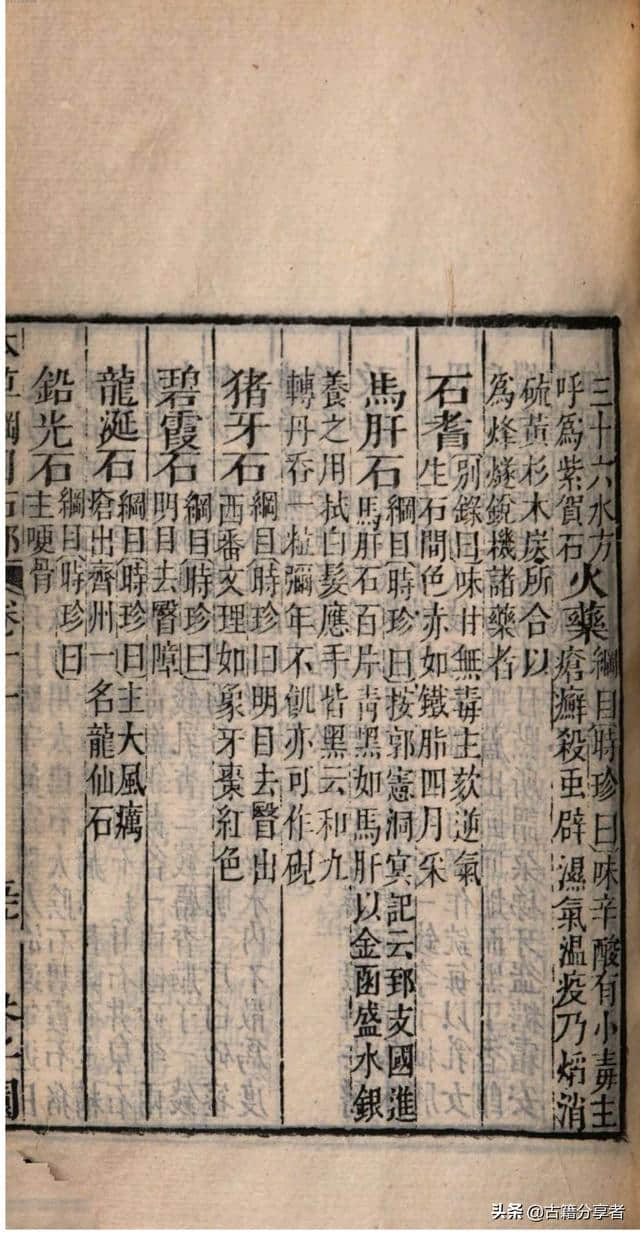 三十六水方
呼為紫賀石
火藥
綱目時珍曰味辛酸有小毒主
瘡癬殺虫辟濕氣溫疫乃焰消
硫黃杉木炭所合以
為烽燧銃機諸藥者
石耆
別錄曰味甘無毒主欬逆氣
生石間色赤如鐵脂四月采
馬肝石
綱目時珍曰按郭憲洞冥記云郅支國進
馬肝石百片青黑如馬肝以金函盛水銀
養之用拭白髮應手皆黑云和九
轉丹吞一粒彌年不飢亦可作硯
猪牙石
綱目時珍曰明目去瞖出
西番文理如象牙棗紅色
碧霞石
綱目時珍曰
明目去瞖障
龍涎石
綱目時珍曰主大風癘
瘡出齊州一名龍仙石
鉛光石
綱目時珍曰
主哽骨
本草綱目石部
卷十一
头条 @古籍分享者